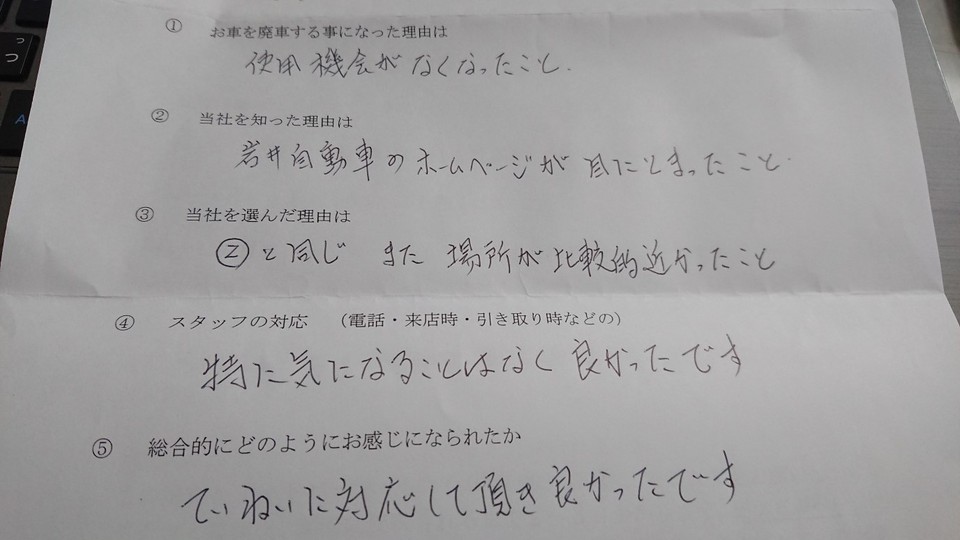 ① お車を廃車する事になった理由は
使用機会がなくなったこと.
② 当社を知った理由は
岩井自動車のホームページが目にとまったこと.
③ 当社を選んだ理由は
②と同じ また 場所が比較的近かったこと
④ スタッフの対応 （電話・来店時・引き取り時などの）
特に気になることはなく良かったです
⑤ 総合的にどのようにお感じになられたか
ていねいに対応して頂き良かったです
っ
つ
A